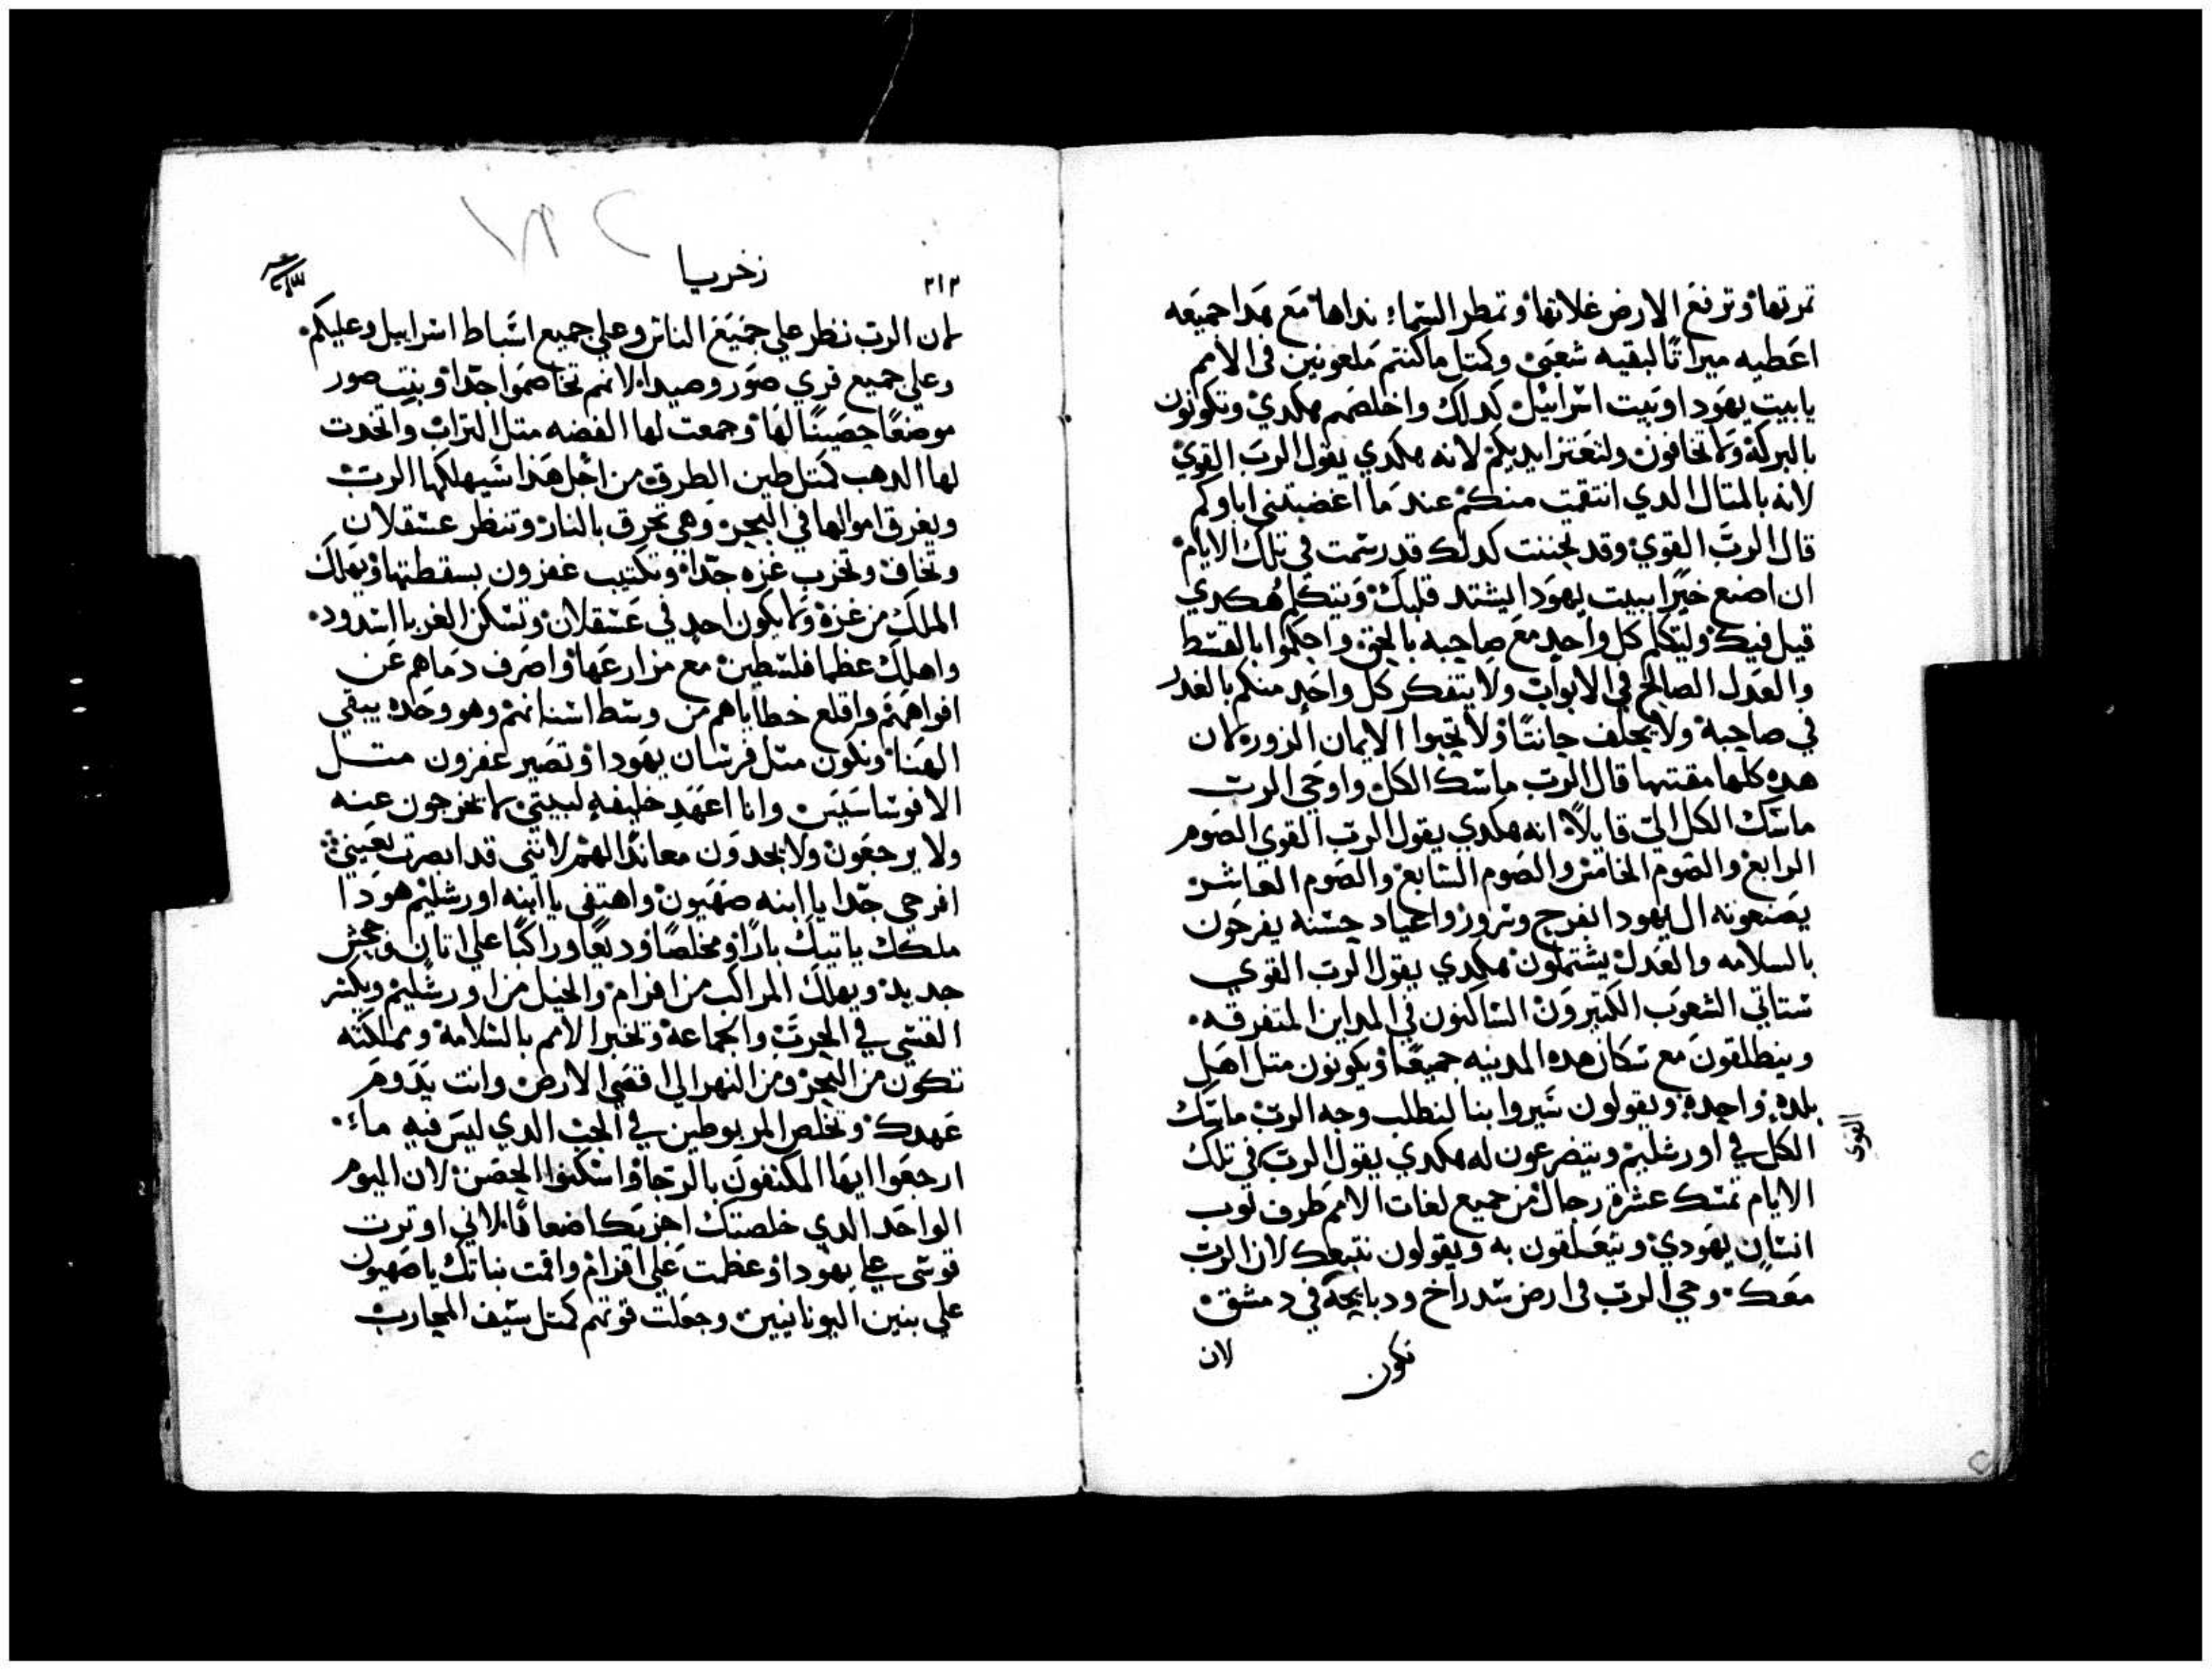 تمرتها وترفع الارض غلاتها وتمطر السما نداها مع هدا جميعه
اعطيه ميراتا لبقيه شعبي وكمتل ماكنتم ملعونين في الامم
يابيت يهودا وبيت اسراييل كدلك واخلصهم هكدي وتكونون
بالبركة ولا تخافون ولتعتز ايديكم لانه هكدي يقول الرب القوي
لانه بالمتال الدي انتقمت منكم عند ما اغضبتني اباوكم
قال الرب القوي وقد تحننت كدلك قد رسمت في تلك الايام
ان اصنع خيرا ببيت يهودا ليشتد قلبك ويتكلم هكدي
قيل فيك وليتكلم كل واحد مع صاحبه بالحق واحكموا بالقسط
والعدل الصالح في الابواب ولا يتفكر كل واحد منكم بالغدر
في صاحبه ولا يحلف حانتا ولا تحبوا الايمان الزوره لان
هده كلها مقتها قال الرب ماسك الكل واوحي الرب
ماسك الكل الي قايلا انه هكدي يقول الرب القوي الصوم
الرابع والصوم الخامس والصوم السابع والصوم العاشر
يصنعونه ال يهودا بفرح وسرور واعياد حسنه يفرحون
بالسلامه والعدل يشتملون هكدي يقول الرب القوي
ستاتي الشعوب الكتيرون الساكنون في المداين المتفرقه
وينطلقون مع سكان هده المدينه جميعا ويكونون متل اهل
بلده واحده ويقولون سيروا بنا لنطلب وجه الرب ماسك
الكل في اورشليم ويتضرعون له هكدي يقول الرب في تلك
القوي
الايام تمسك عشرة رجال من جميع لغات الامم طرف توب
انسان يهودي ويتعلقون به ويقولون نتبعك لان الرب
معك وحي الرب في ارض سدراخ ودبايحه في دمشق
تكون
لان
٢١٢
زخريا
لان الرب نظر علي جميع الناس وعلي جميع اسباط اسراييل وعليكم
وعلي جميع قري صور وصيدا لانهم تخاصموا جدا وبنت صور
موضعا حصينا لها وجمعت لها الفضه متل التراب واتخدت
لها الدهب كمتل طين الطرق من اجل هذا سيهلكها الرب
ويغرق اموالها في البحر وهي تحرق بالنار وتنظر عسقلان
وتخاف وتخرب غزه جدا وتكتيب عفرون بسقطتها ويهلك
الملك من غزة ولا يكون احد في عسقلان وتسكن الغربا اسدود
واهلك عظما فلسطين مع مزارعها واصرف دماهم عن
افواههم واقلع خطاياهم من وسط اسنانهم وهو وحده يبقي
الهنا ويكون متل فرسان يهودا وتصير عفرون متل
الانوساسيين وانا اعهد خليفه لبيتي لا يخرجون عنه
ولا يرجعون ولا يجدون معاندا لهم لانني قد ابصرت بعيني
افرحي جدا يا ابنه صهيون واهتفي يا ابنه اورشليم هودا
ملكك ياتيك بارا ومخلصا وديعا وراكبا علي اتان وجحش
جديد ويهلك المراكب من افرام والخيل من اورشليم ويكسر
القسي في الحرب والجماعة وتخبر الامم بالسلامة ومملكته
تكون من البحر ومن النهر الي اقصي الارض وانت بدوم
عهدك وتخلص المربوطين في الجب الدي ليس فيه ماء
ارجعوا ايها المكنفون بالرجا واسكنوا الحصن لان اليوم
الواحد الدي خلصتك اجزيك اضعافا لاني اوترت
قوسي علي يهودا وعظمت علي افرام واقمت بناتك يا صهيون
علي بنين اليونانيين وجعلت قوتهم كمتل سيف المحارب